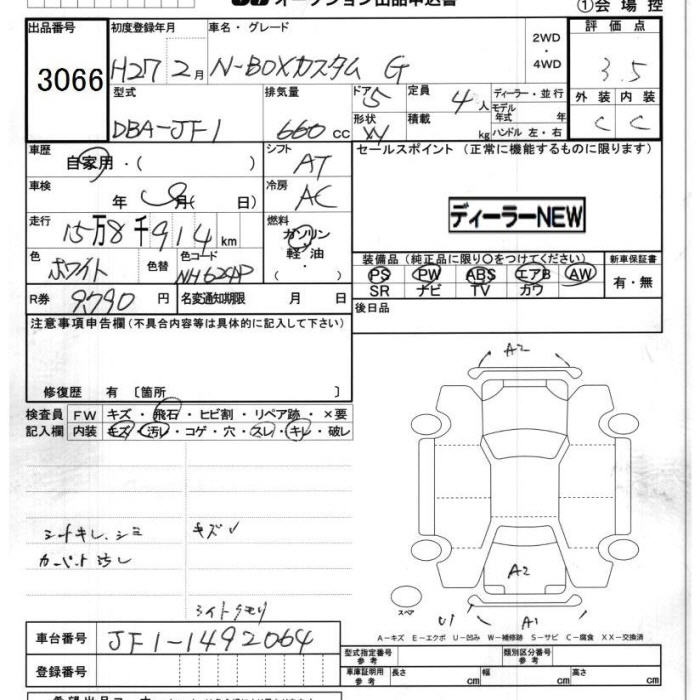 オークション出品申込書
①会場控
出品番号 初度登録年月 車名・グレード 2WD・4WD 評価点
3066 H27 2月 N-BOXカスタム G 3.5
型式 排気量 ドア 5 定員 4人 ディーラー・並行 外装 内装
DBA-JF1 660cc 形状 W 積載 kg モデル年式 年 ハンドル 左・右 C C
車歴 シフト セールスポイント (正常に機能するものに限ります)
自家用・( ) AT
車検 冷房
年 月( 日) AC
ディーラーNEW
走行 燃料
15万8千914km ガソリン・軽油・( )
色 色替 色コード 装備品 (純正品に限り○をつけてください) 新車保証書
ホワイト NH624P PS PW ABS エアB AW 有・無
SR ナビ TV カワ
R券 9790円 名変通知期限 月 日 後日品
注意事項申告欄(不具合内容等は具体的に記入して下さい)
A2
修復歴 有 〔箇所 〕
検査員 FW キズ・飛石・ヒビ割・リペア跡・×要
記入欄 内装 キズ・汚レ・コゲ・穴・スレ・キレ・破レ
シートキレ、シミ キズレ
カーペット汚レ
A2
ライトクモリ
スペア
U1 A1
A-キズ E-エクボ U-凹み W-補修跡 S-サビ C-腐食 XX-交換済
車台番号 JF1-1492064
型式指定番号 参考 類別区分番号 参考
登録番号 車庫証明用 参考 長さ cm 幅 cm 高さ cm